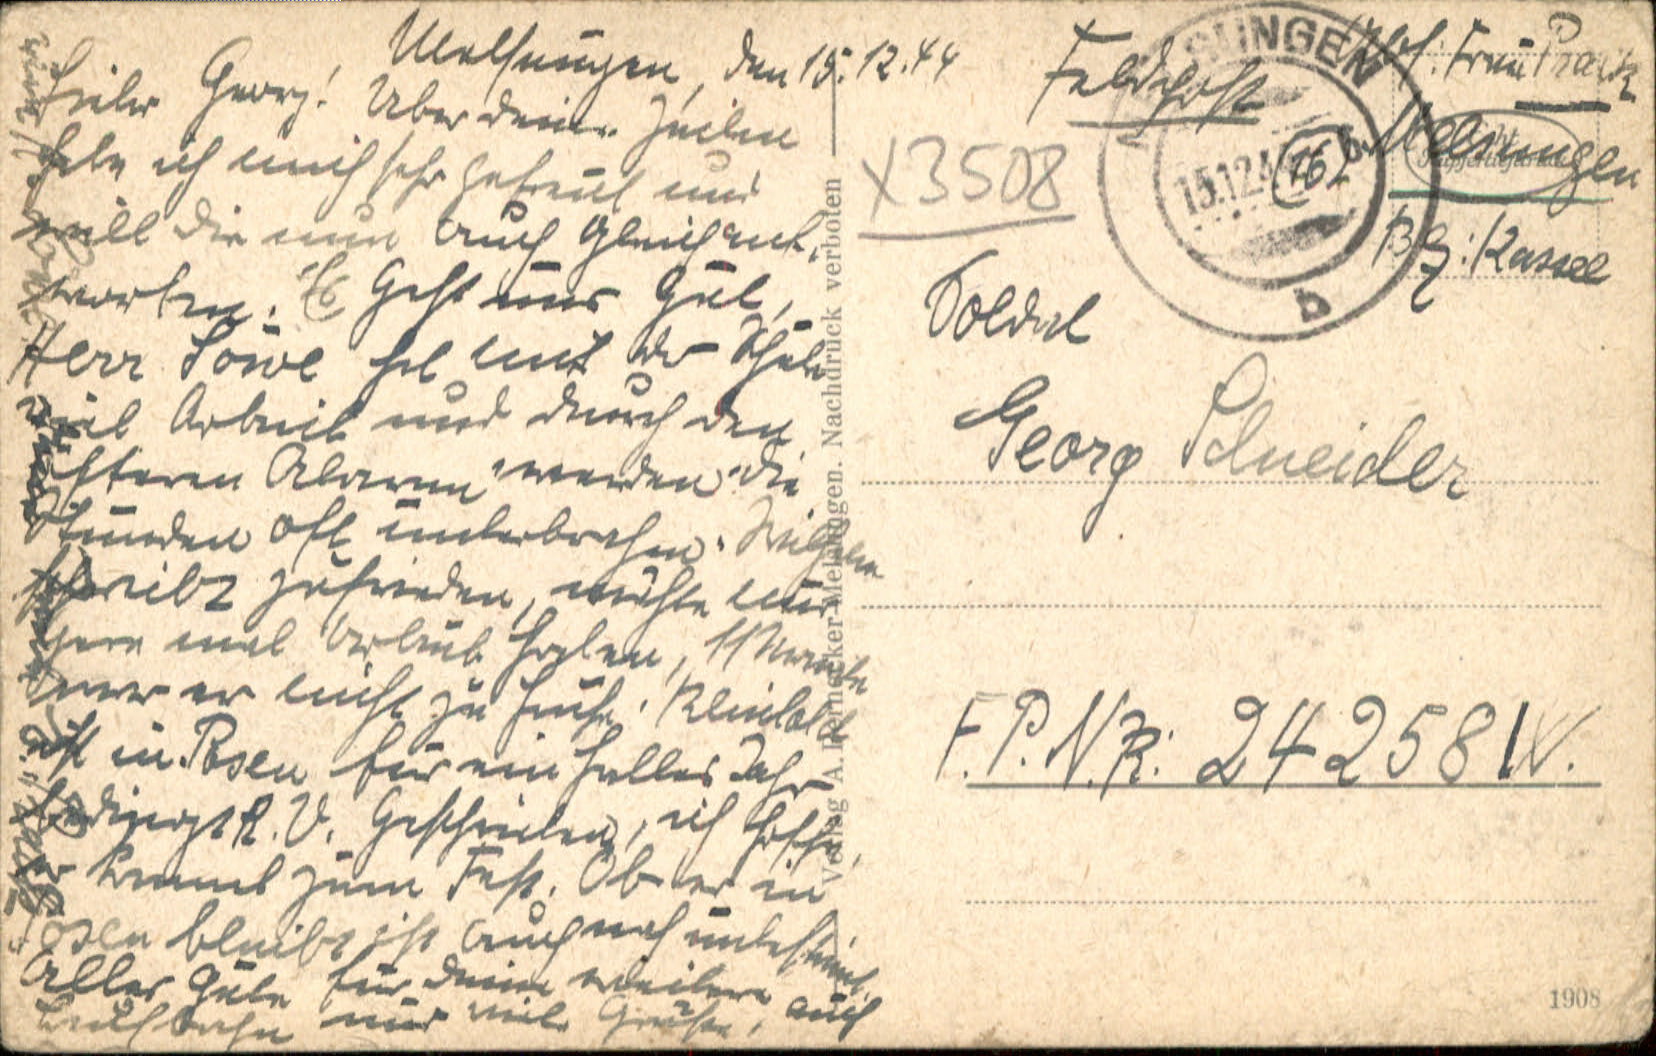 Melsungen, den 15.12.44
Lieber Georg! Über deine Zeilen
habe ich mich sehr gefreut und
will dir nun auch Gleich ant-
worten. Es Geht uns Gut,
Herr Löwe hat mit der Schule
viel Arbeit und durch den
öfteren Alarm werden die
Stunden oft unterbrochen. Wilhelm
schreibt zufrieden, möchte nur
gern mal Urlaub haben, 11 Monate
war er nicht zu Hause. Reinhold
ist in Posen für ein halbes Jahr
Geschrieben, ich hoffe,
er kommt zum Fest. Ob er in
Posen bleibt ist auch noch unbestimmt.
Alles Gute für deine weitere
und viele Grüße, auch
Verlag A. Bernecker Melsungen. Nachdruck verboten
Feldpost
Abs. Frau
(16) Melsungen
Bz: Kassel
MELSUNGEN
15.12.44
b
X3508
Soldat
Georg Schneider
F.P.NR: 24258 W.
1908